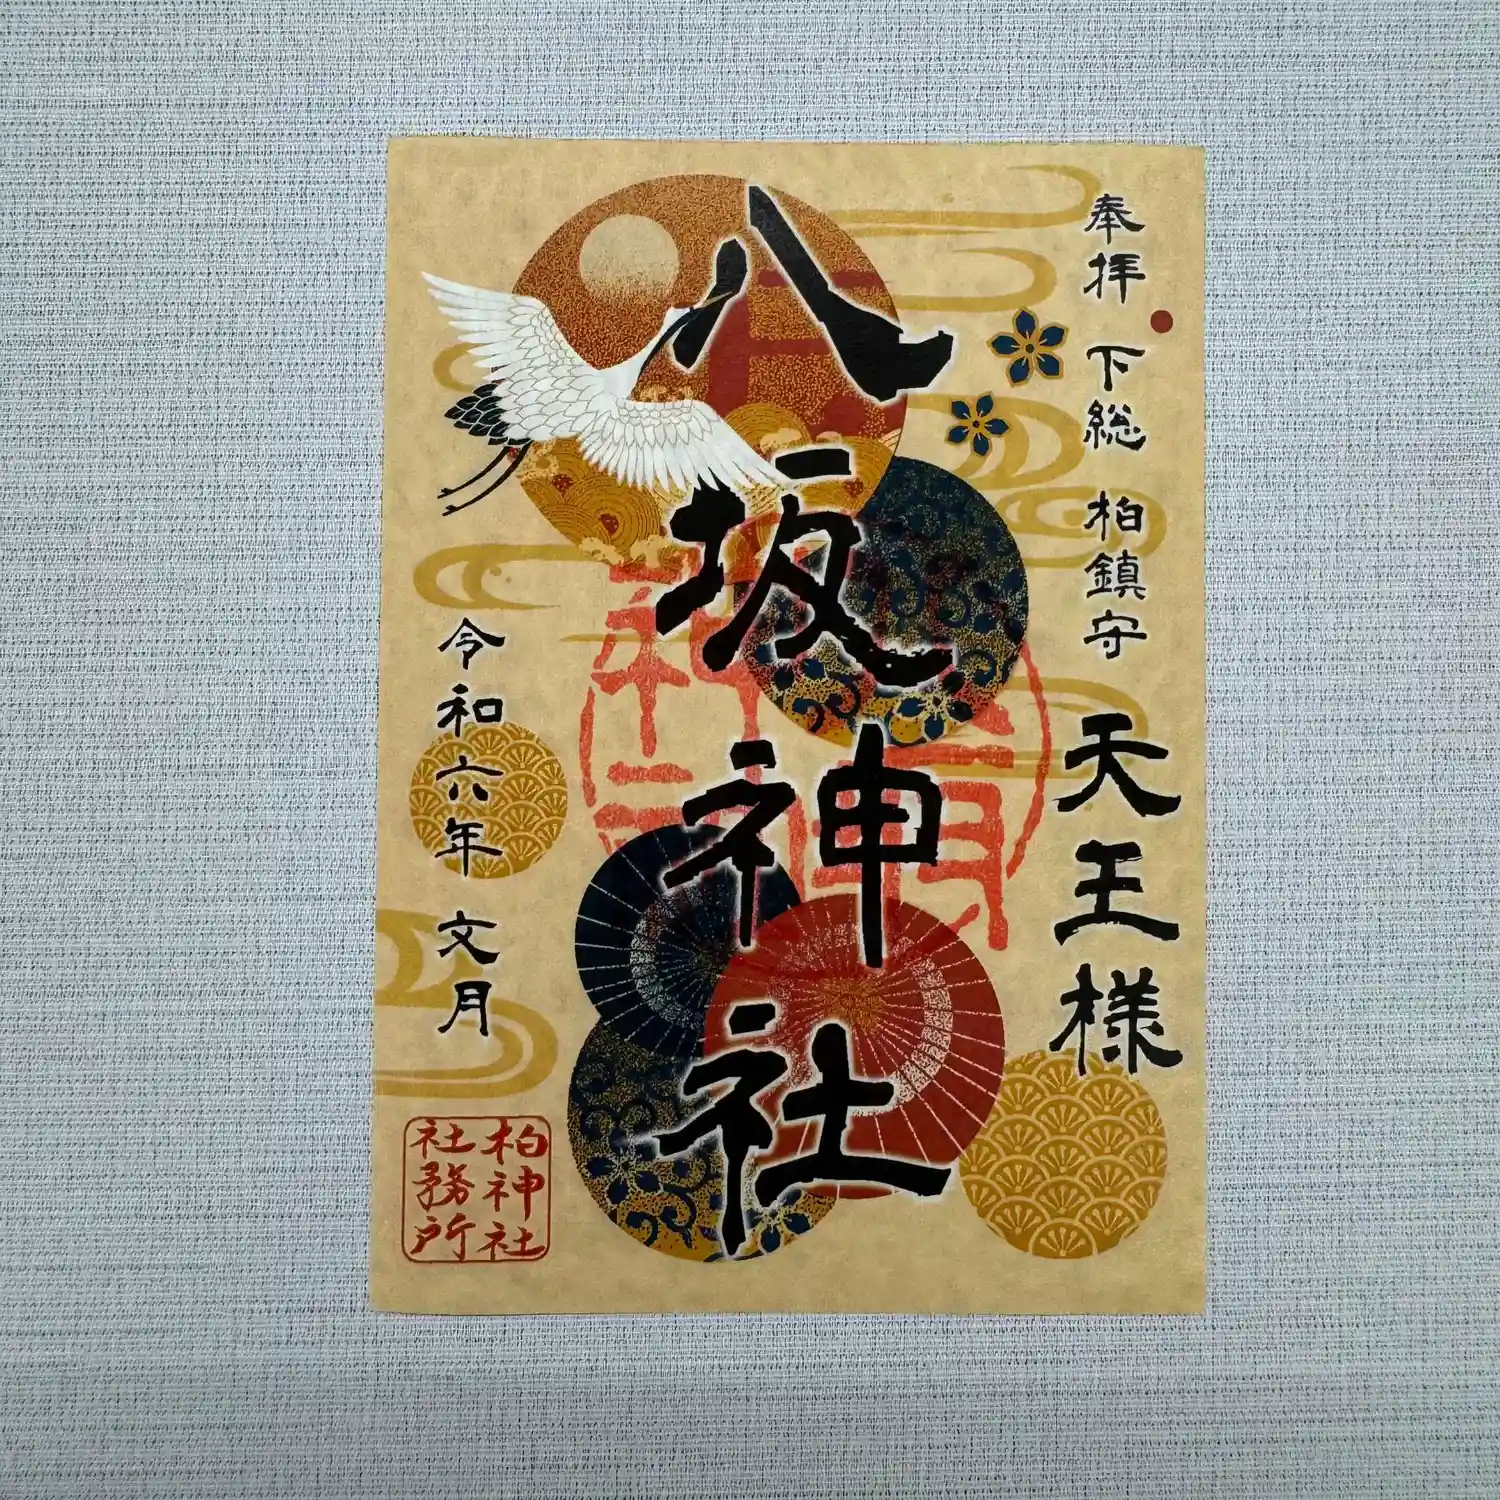 奉拝 下総 柏鎮守
天王様
八坂神社
令和六年 文月
柏神社
社務所